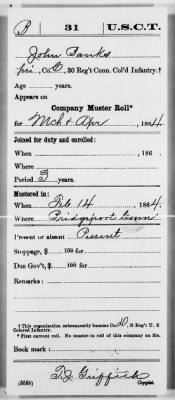 B 31 U.S.C.T.
John Banks
Pri, Co. 30 Reg't Conn. Col'd Infantry.†
Age years.
Appears on
Company Muster Roll*
for Mch & Apr, 1864
Joined for duty and enrolled:
When , 186 .
Where
Period 3 years.
Mustered in:
When Feb. 14, 1864.
Where Bridgeport Conn
Present or absent Present
Stoppage, $ 100 for
Due Gov't, $ 100 for
Remarks:
† This organization subsequently became Co. , 31 Reg't U. S.
Colored Infantry.
* First current roll. No muster-in roll of this company on file.
Book mark:
T. J. Griffith
Copyist.